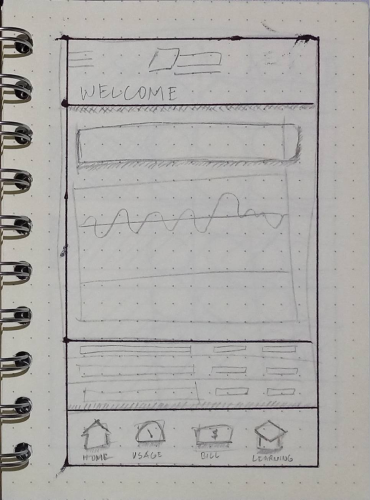 WELCOME
$
HOME USAGE BILL LEARNING